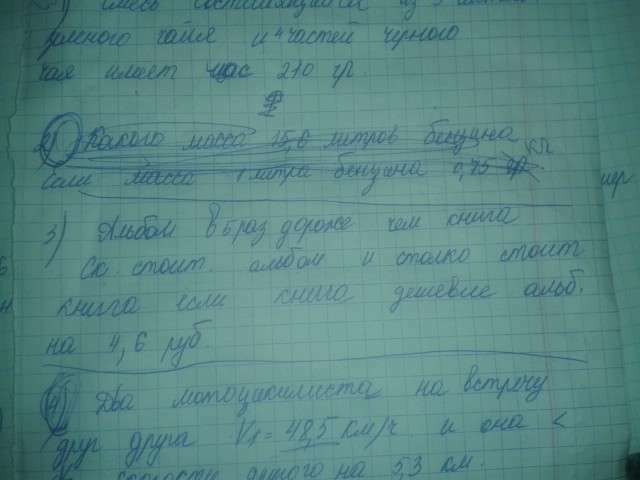 смесь состоящая из 3
зеленого чайя и 4 частей черного
чая имеет мас 210 гр.
2) Какого масса 15,6 литров бензина
Если масса 1 литра бензина 0,75 гр кг
3) Альбом в 5 раз дороже чем книга
Ск. стоит. альбом и столко стоит
книга если книга дешевле альб.
на 4,6 руб.
4) Два мотоциклиста на встречу
друг друга V₁= 48,5 км/ч и она <
другого на 5,3 км.